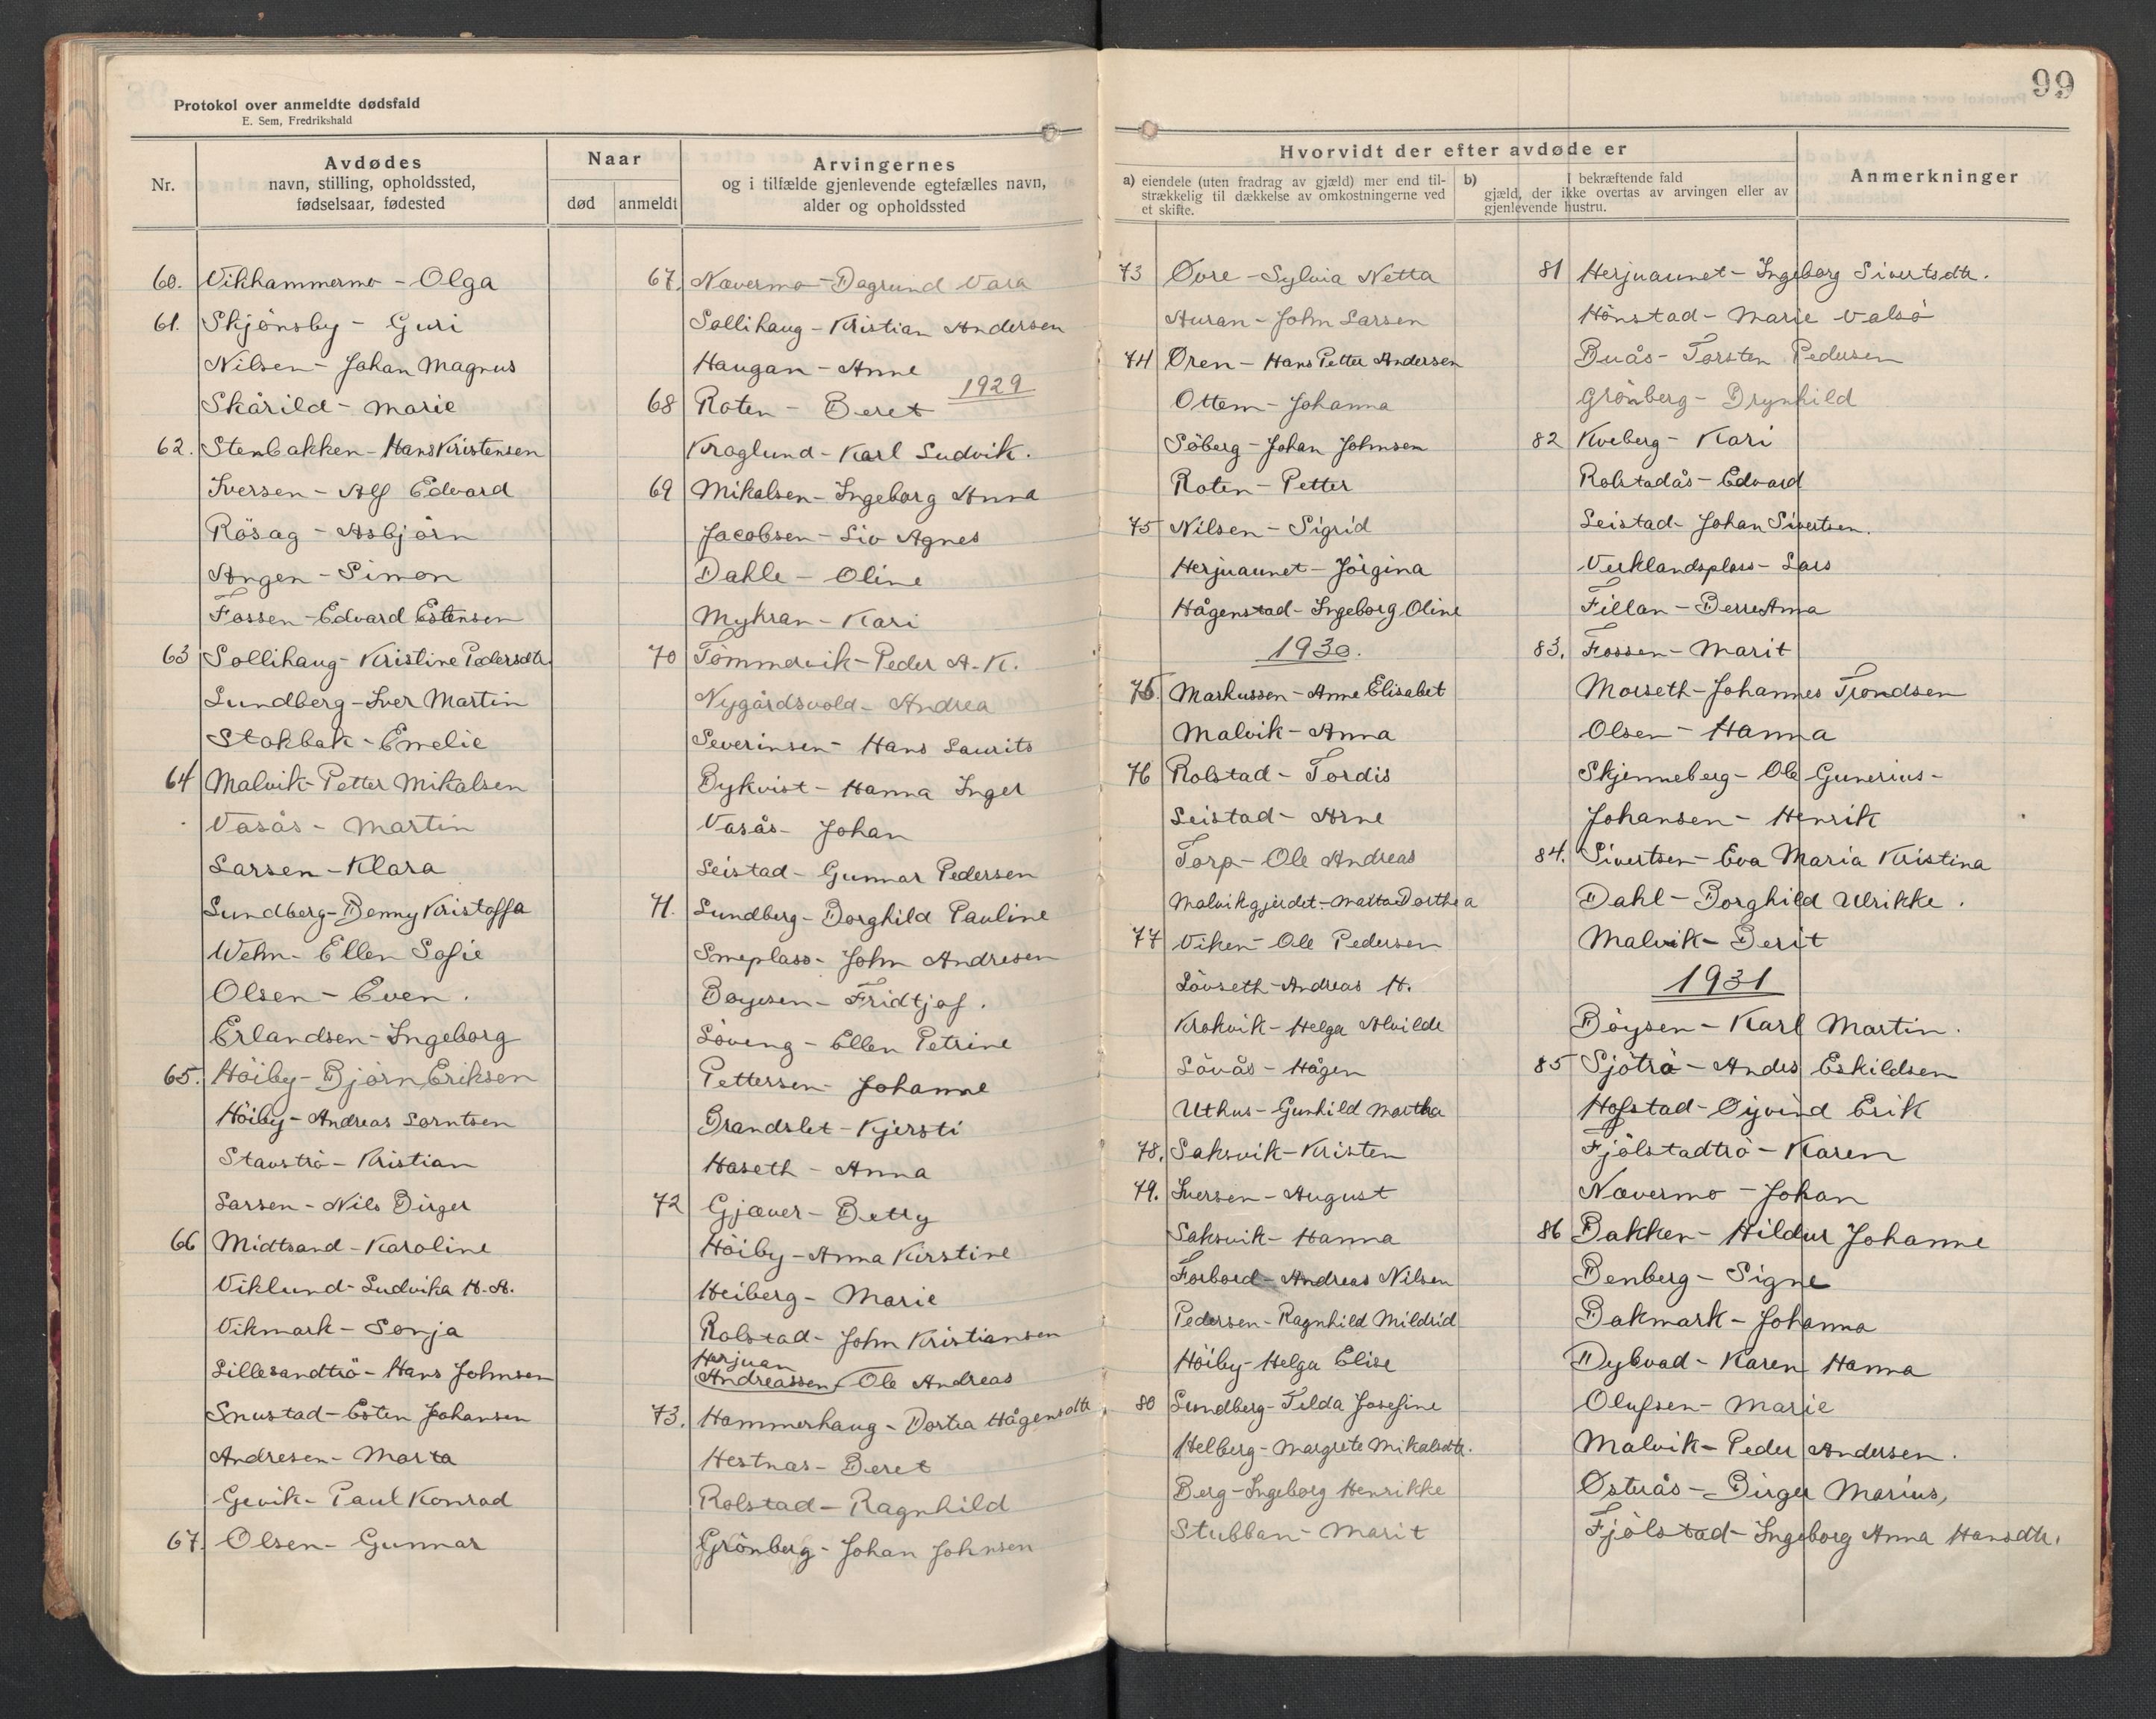 Protokol over anmeldte dødsfald
E. Sem, Fredrikshald
Nr.
Avdødes
navn, stilling, opholdssted,
fødselsaar, fødested
Naar
død
anmeldt
Arvingernes
og i tilfælde gjenlevende egtefælles navn,
alder og opholdssted
60. Vikhammermo - Olga
61. Skjönsby - Guri
Nilsen - Johan Magnus
Skårild - Marie
62. Stenbakken - Hans Kristensen
Iversen - Alf Edvard
Rösag - Asbjörn
Angen - Simon
Fossen - Edvard Estensen
63 Sollihaug - Kristine Pedersdtr.
Lundberg - Iver Martin
Stokbak - Emelie
64 Malvik - Petter Mikalsen
Vasås - Martin
Larsen - Klara
Lundberg - Benny Kristoffa
Wehn - Ellen Sofie
Olsen - Even.
Erlandsen - Ingeborg
65. Höiby - Björn Eriksen
Höiby - Andreas Lorntsen
Stavströ - Kristian
Larsen - Nils Birger
66 Midtsand - Karoline
Viklund - Ludvika H. A.
Vikmark - Sonja
Lillesandtrö - Hans Johnsen
Snustad - Esten Johansen
Andresen - Marta
Gevik - Paul Konrad
67. Olsen - Gunnar
67. Nævermo - Dagrund Vara
Sollihaug - Kristian Andersen
Haugan - Anne
1929
68 Roten - Beret
Kroglund - Karl Ludvik.
69 Mikalsen - Ingeborg Anna
Jacobsen - Liv Agnes
Dahle - Oline
Myhran - Kari
70 Tömmervik - Peder A. K.
Nygårdsvold - Andrea
Severinsen - Hans Laurits
Bykvist - Hanna Inger
Vasås - Johan
Leistad - Gunnar Pedersen
71. Lundberg - Borghild Pauline
Smeplass - John Andresen
Boyesen - Fridtjof.
Löveng - Ellen Petrine
Pettersen - Johanne
Grandslet - Kjersti
Haseth - Anna
72 Gjæver - Betty
Höiby - Anna Kirstine
Heiberg - Marie
Rolstad - John Kristiansen
Herjuan
Andreassen, Ole Andreas
73. Hammerhaug - Dortea Hågensdtr
Hestnas - Beret
Rolstad - Ragnhild
Grönberg - Johan Johnsen
99
Hvorvidt der efter avdøde er
a) eiendele (uten fradrag av gjæld) mer end til-
strækkelig til dækkelse av omkostningerne ved
et skifte.
b) I bekræftende fald
gjæld, der ikke overtas av arvingen eller av
gjenlevende hustru.
Anmerkninger
73 Øvre - Sylvia Netta
Auran - John Larsen
74 Øren - Hans Petter Andersen
Ottem - Johanna
Söberg - Johan Johnsen
Roten - Petter
75 Nilsen - Sigrid
Herjuaunet - Jörgina
Hågenstad - Ingeborg Oline
1930.
75. Markussen - Anne Elisabet
Malvik - Anna
76 Rolstad - Tordis
Leistad - Arne
Torp - Ole Andreas
Malvikgjerdet - Marta Dorthea
77 Viken - Ole Pedersen
Lövseth - Andreas H.
Krokvik - Helga Alvilde
Lövås - Hågen
Uthus - Gunhild Martha
78. Saksvik - Kristen
79. Iversen - August
Saksvik - Hanna
Forbord - Andreas Nilsen
Pedersen - Ragnhild Mildrid
Höiby - Helga Elise
80 Lundberg - Tilda Josefine
Helberg - Margrete Mikalsdtr.
Berg - Ingeborg Henrikke
Stubban - Marit
81 Herjuaunet - Ingeborg Sivertsdtr.
Hönstad - Marie Valsö
Buås - Torsten Pedersen
Grönberg - Brynhild
82 Kveberg - Kari
Rolstadås - Edvard
Leistad - Johan Sivertsen.
Verklandsplass - Lars
Fillan - Berre Anna
83. Fossen - Marit
Morseth - Johannes Trondsen
Olsen - Hanna
Skjenneberg - Ole Gunerius -
Johansen - Henrik
84. Sivertsen - Eva Maria Kristina
Dahl - Borghild Ulrikke.
Malvik - Berit
1931
Böysen - Karl Martin.
85 Sjöträ - Andrs Eskildsen
Hofstad - Øyvind Erik
Fjölstadtrö - Karen
Nævermo - Johan
86 Bakken - Hildur Johanne
Benberg - Signe
Bakmark - Johanna
Dybvad - Karen Hanna
Olufsen - Marie
Malvik - Peder Andersen.
Østerås - Birger Marius,
Fjölstad - Ingeborg Anna Hansdtr.